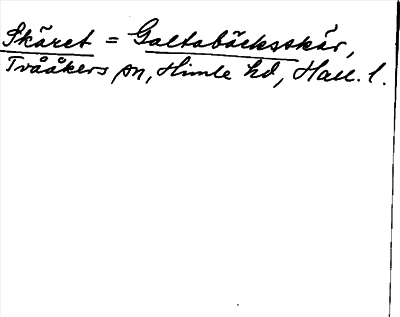 Skäret = Galtabäcksskär,
Tvååkers sn, Himle hd, Hall. l.